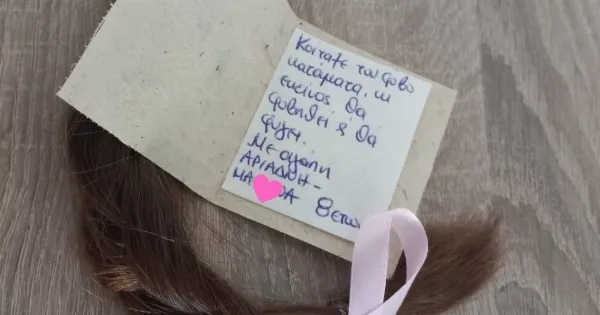 Κοιταξε τον φοβο
κατάματα, κι
εκείνος θα
φοβηθεί & θα
φύγει.
Με αγάπη
ΑΡΙΑΔΝΗ-
8 ετών